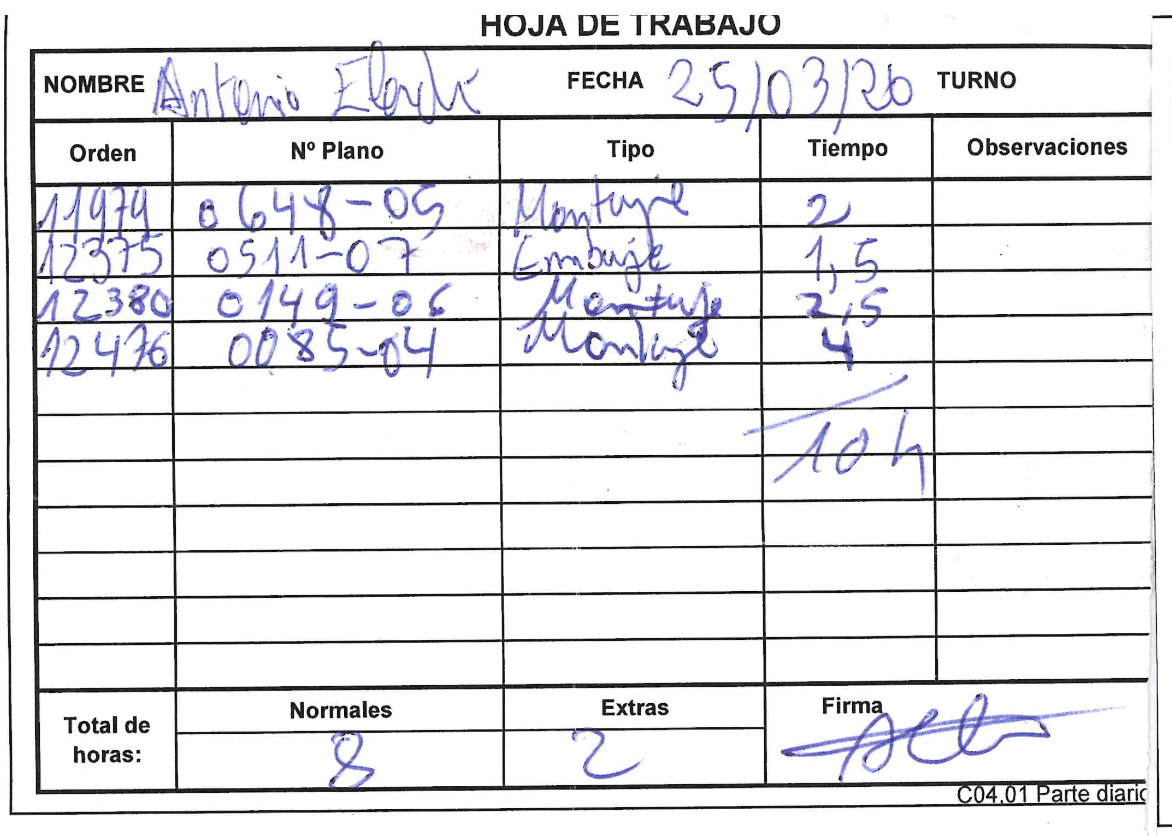 HOJA DE TRABAJO
NOMBRE Antonio FECHA 25/03/26 TURNO
Orden Nº Plano Tipo Tiempo Observaciones
11979 0648-05 Montaje 2
12375 0511-07 Embaje 1,5
12380 0149-06 Montaje 2,5
12476 0085-04 Montaje 4
10 h
Total de horas: Normales Extras Firma
8 2
C04.01 Parte diario